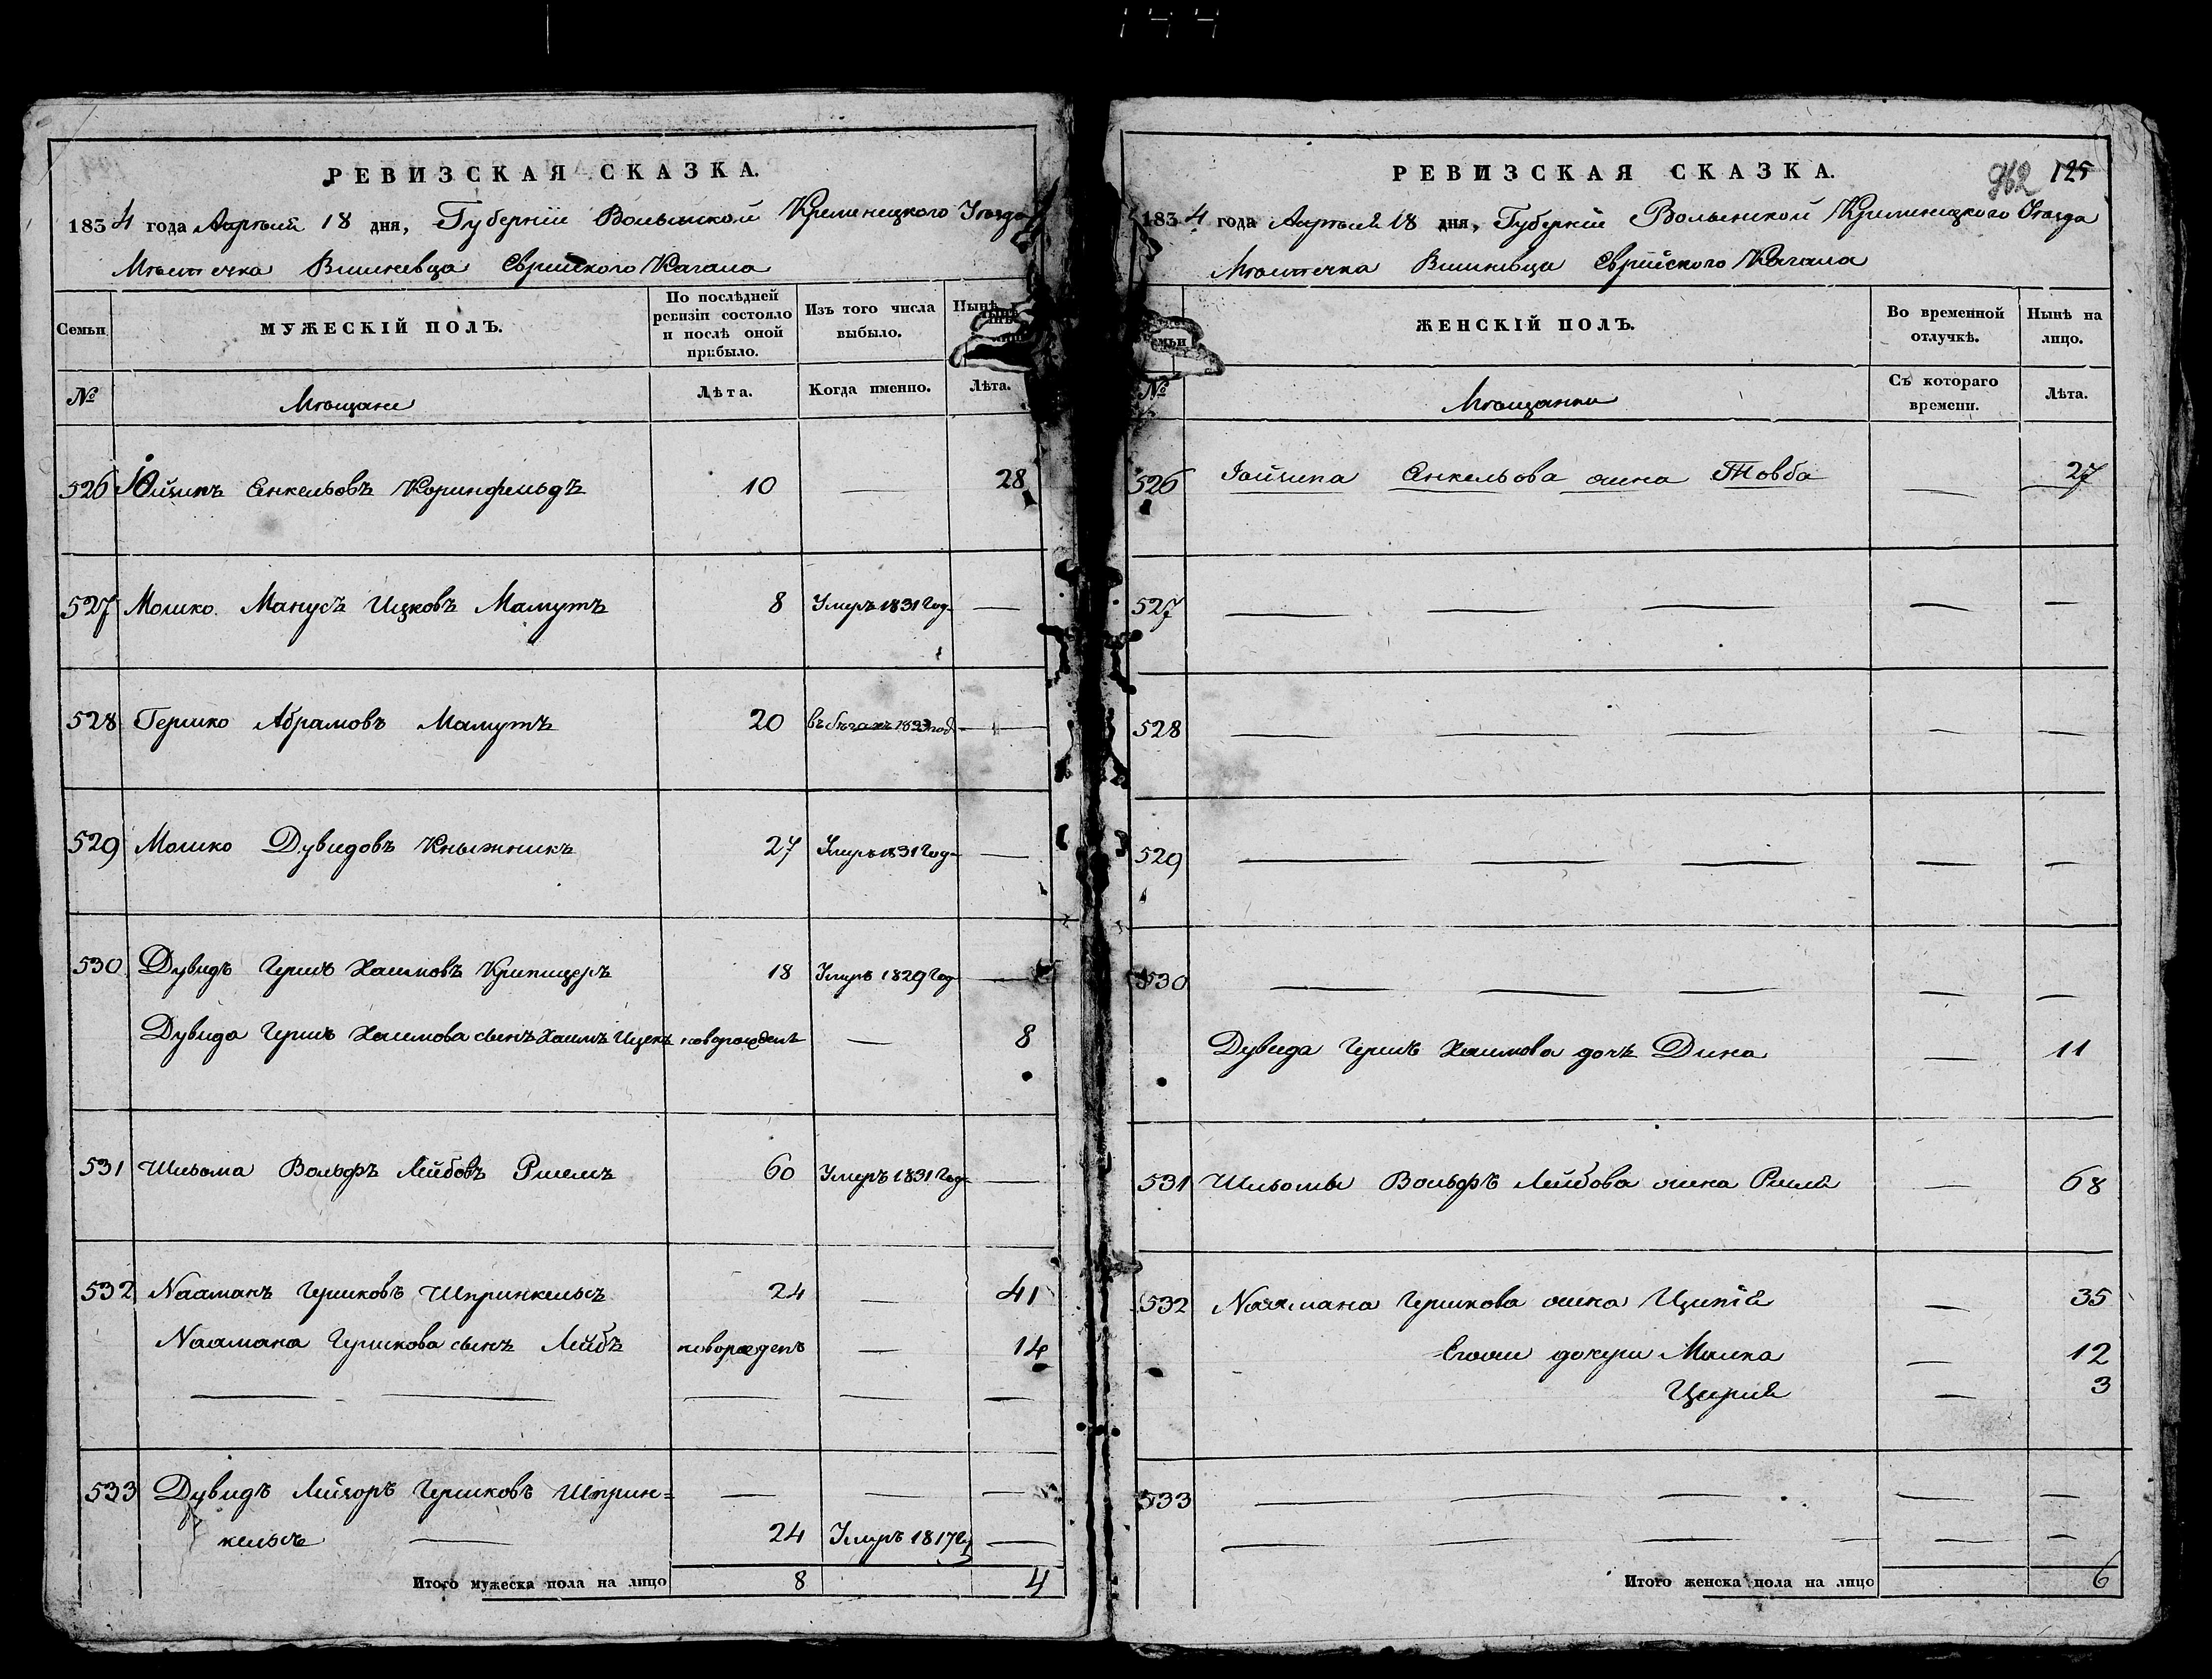 144
РЕВИЗСКАЯ СКАЗКА.
1834 года Апрѣля 18 дня, Губерніи Волынской Кременецкого Уѣзда
Мѣстечка Вишневца Еврейского Кагала
Семьи.
МУЖЕСКІЙ ПОЛЪ.
По послѣдней ревизіи состояло и послѣ оной прибыло.
Изъ того числа выбыло.
Нынѣ
№
Мѣщане
Лѣта.
Когда именно.
Лѣта.
526 Іойзикъ Янкельовъ Коринфельдъ 10 — 28
527 Мошко Манусъ Ицковъ Мамутъ 8 Умеръ 1831 Год —
528 Гершко Абрамовъ Мамутъ 20 въ бѣгахъ 1833 год —
529 Мошко Дувидовъ Кныжникъ 27 Умеръ 1831 Год —
530 Дувидъ Гершъ Хаимовъ Крипицеръ 18 Умеръ 1829 Год —
Дувида Гершъ Хаимова сынъ Хаимъ Ицекъ новорожденъ — 8
531 Шльома Вольфъ Лейбовъ 60 Умеръ 1831 Год —
532 Нааманъ Гершковъ Шпринкельсъ 24 — 41
Наамана Гершкова сынъ Лейбъ новорожденъ — 14
— — — — —
533 Дувидъ Лейзоръ Гершковъ Шприн= — — —
кельсъ — 24 Умеръ 1817 —
Итого мужеска пола на лицо 8 4
962 125
РЕВИЗСКАЯ СКАЗКА.
1834 года Апрѣля 18 дня, Губерніи Волынской Кременецкого Уѣзда
Мѣстечка Вишневца Еврейского Кагала
ЖЕНСКІЙ ПОЛЪ.
Во временной отлучкѣ.
Нынѣ на лицо.
№
Мѣщанки
Съ котораго времени.
Лѣта.
526 Іойзика Янкельова жена Товба — 27
527 — — — — —
528 — — — — —
529 — — — — —
530 — — — — —
Дувида Гершъ Хаимова дочь Дина — 11
531 Шльомы Вольфъ Лейбова жена — 68
532 Наамана Гершкова жена Ципія — 35
Егожъ дочери Малка — 12
Цирля — 3
533 — — — — —
— — — — — —
Итого женска пола на лицо 6